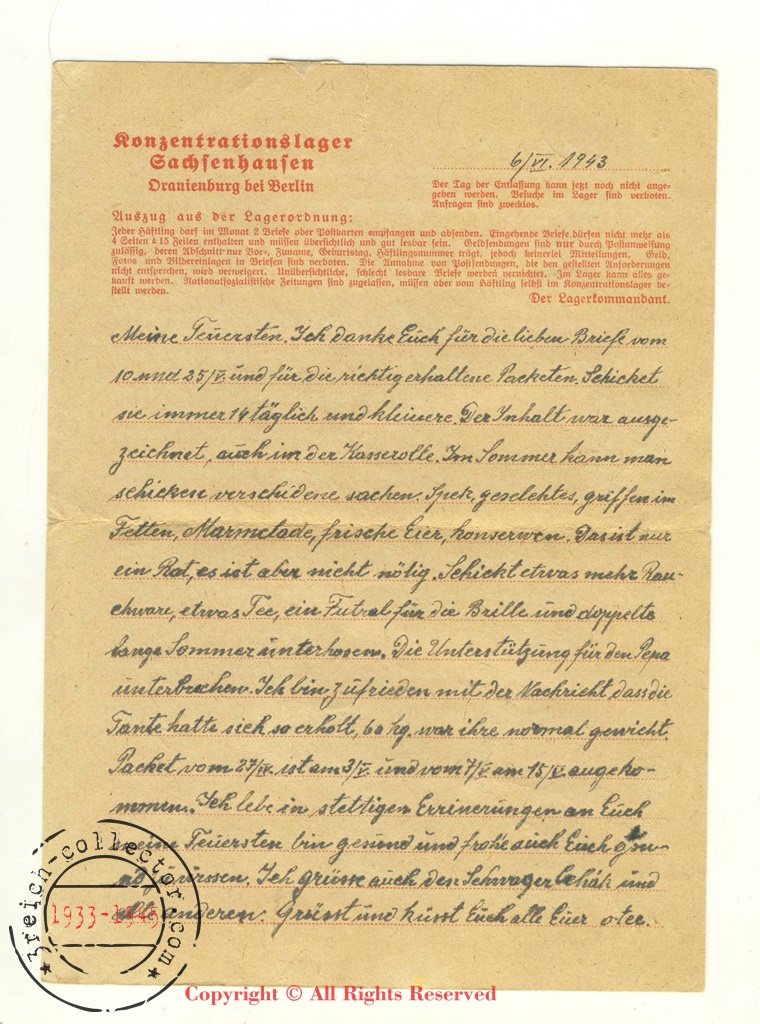 Konzentrationslager
Sachsenhausen
Oranienburg bei Berlin
6/VI. 1943
Der Tag der Entlassung kann jetzt noch nicht ange-
geben werden. Besuche im Lager sind verboten.
Anfragen sind zwecklos.
Auszug aus der Lagerordnung:
Jeder Häftling darf im Monat 2 Briefe oder Postkarten empfangen und absenden. Eingehende Briefe dürfen nicht mehr als
4 Seiten à 15 Zeilen enthalten und müssen übersichtlich und gut lesbar sein. Geldsendungen sind nur durch Postanweisung
zulässig, deren Abschnitt nur Vor-, Zuname, Geburtstag, Häftlingsnummer trägt, jedoch keinerlei Mitteilungen. Geld,
Fotos und Bildereinlagen in Briefen sind verboten. Die Annahme von Postsendungen, die den gestellten Anforderungen
nicht entsprechen, wird verweigert. Unübersichtliche, schlecht lesbare Briefe werden vernichtet. Im Lager kann alles ge-
kauft werden. Nationalsozialistische Zeitungen sind zugelassen, müssen aber vom Häftling selbst im Konzentrationslager be-
stellt werden.
Der Lagerkommandant.
Meine Teuersten. Ich danke Euch für die lieben Briefe vom
10 und 25/V. und für die richtig erhaltene Packeten. Schicket
sie immer 14 täglich und kleinere. Der Inhalt war ausge-
zeichnet, auch im der Kasserolle. Im Sommer kann man
schicken verschidene sachen. Spek, geselchtes, griffen im
Fetten, Marmelade, frische Eier, konserwen. Das ist nur
ein Rat, es ist aber nicht nötig. Schickt etwas mehr Rau-
chware, etwas Tee, ein Futral für die Brille und doppelte
lange Sommer unterhosen. Die Unterstützung für den Pepa
unterbrechen. Ich bin zufrieden mit der Nachricht dass die
Tante hatte sich so erholt, 60 kg. war ihre normal gewicht.
Packet vom 27/IV. ist am 3/V. und vom 7/V am 15/V angeko-
mmen. Ich lebe in stettigen Errinerungen an Euch
meine Teuersten bin gesund und frohe auch Euch gesu-
nd wissen. Ich grüsse auch den Schwager Lehák und
alle anderen. Grüsst und küsst Euch alle Euer otec.
3reich-collector.com
1933-1945
Copyright © All Rights Reserved